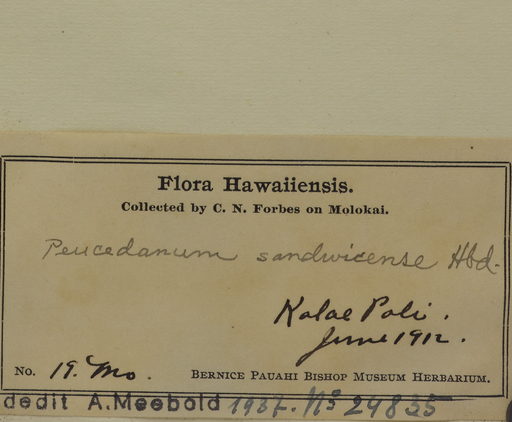 Flora Hawaiiensis.
Collected by C. N. Forbes on Molokai.
Peucedanum sandwicense Hbd.
Kalae Pali.
June 1912.
No. 19. Mo. BERNICE PAUAHI BISHOP MUSEUM HERBARIUM.
dedit A.Meebold 1937. Nº 24835